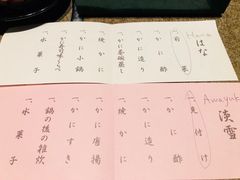 Hana
はな
一、前菜
一、かに酢
一、かに造り
一、かに茶碗蒸し
一、焼かに
一、かに小鍋
一、かに寿司味くらべ
一、水菓子
Awayuki
淡雪
一、先付け
一、かに酢
一、かに造り
一、焼かに
一、かに唐揚
一、かにすき
一、鍋の後の雑炊
一、水菓子